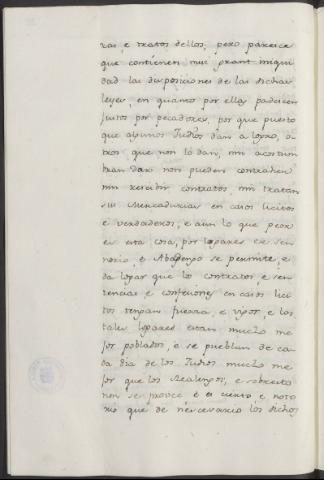 zas, e tratos dellos, pero parece
que contienen mui grant iniqui
dad las disposiciones de las dichas
leyes, en quanto por ellas padecen
justos por pecadores, por que puesto
que algunos Judios dan a logro, o
tros que non lo dan, nin acostum
bran dar non pueden contraher
nin exercir contratos, nin tratan
su Mercadurias en casos licitos
e verdaderos, e aun lo que peor
es esta cosa, por logares de Sen
norio, e Abadengo se permite, e
da logar que los contratos, e sen
tencias, e confesiones en casos lici
tos tengan fuerza, e vigor, e los
tales logares estan mucho me
jor poblados, e se pueblan de ca
da dia de los Judios mucho me
jor que los Realengos, e sobresto
non se provee, e es cierto, e noto
rio que de necesario los dichos